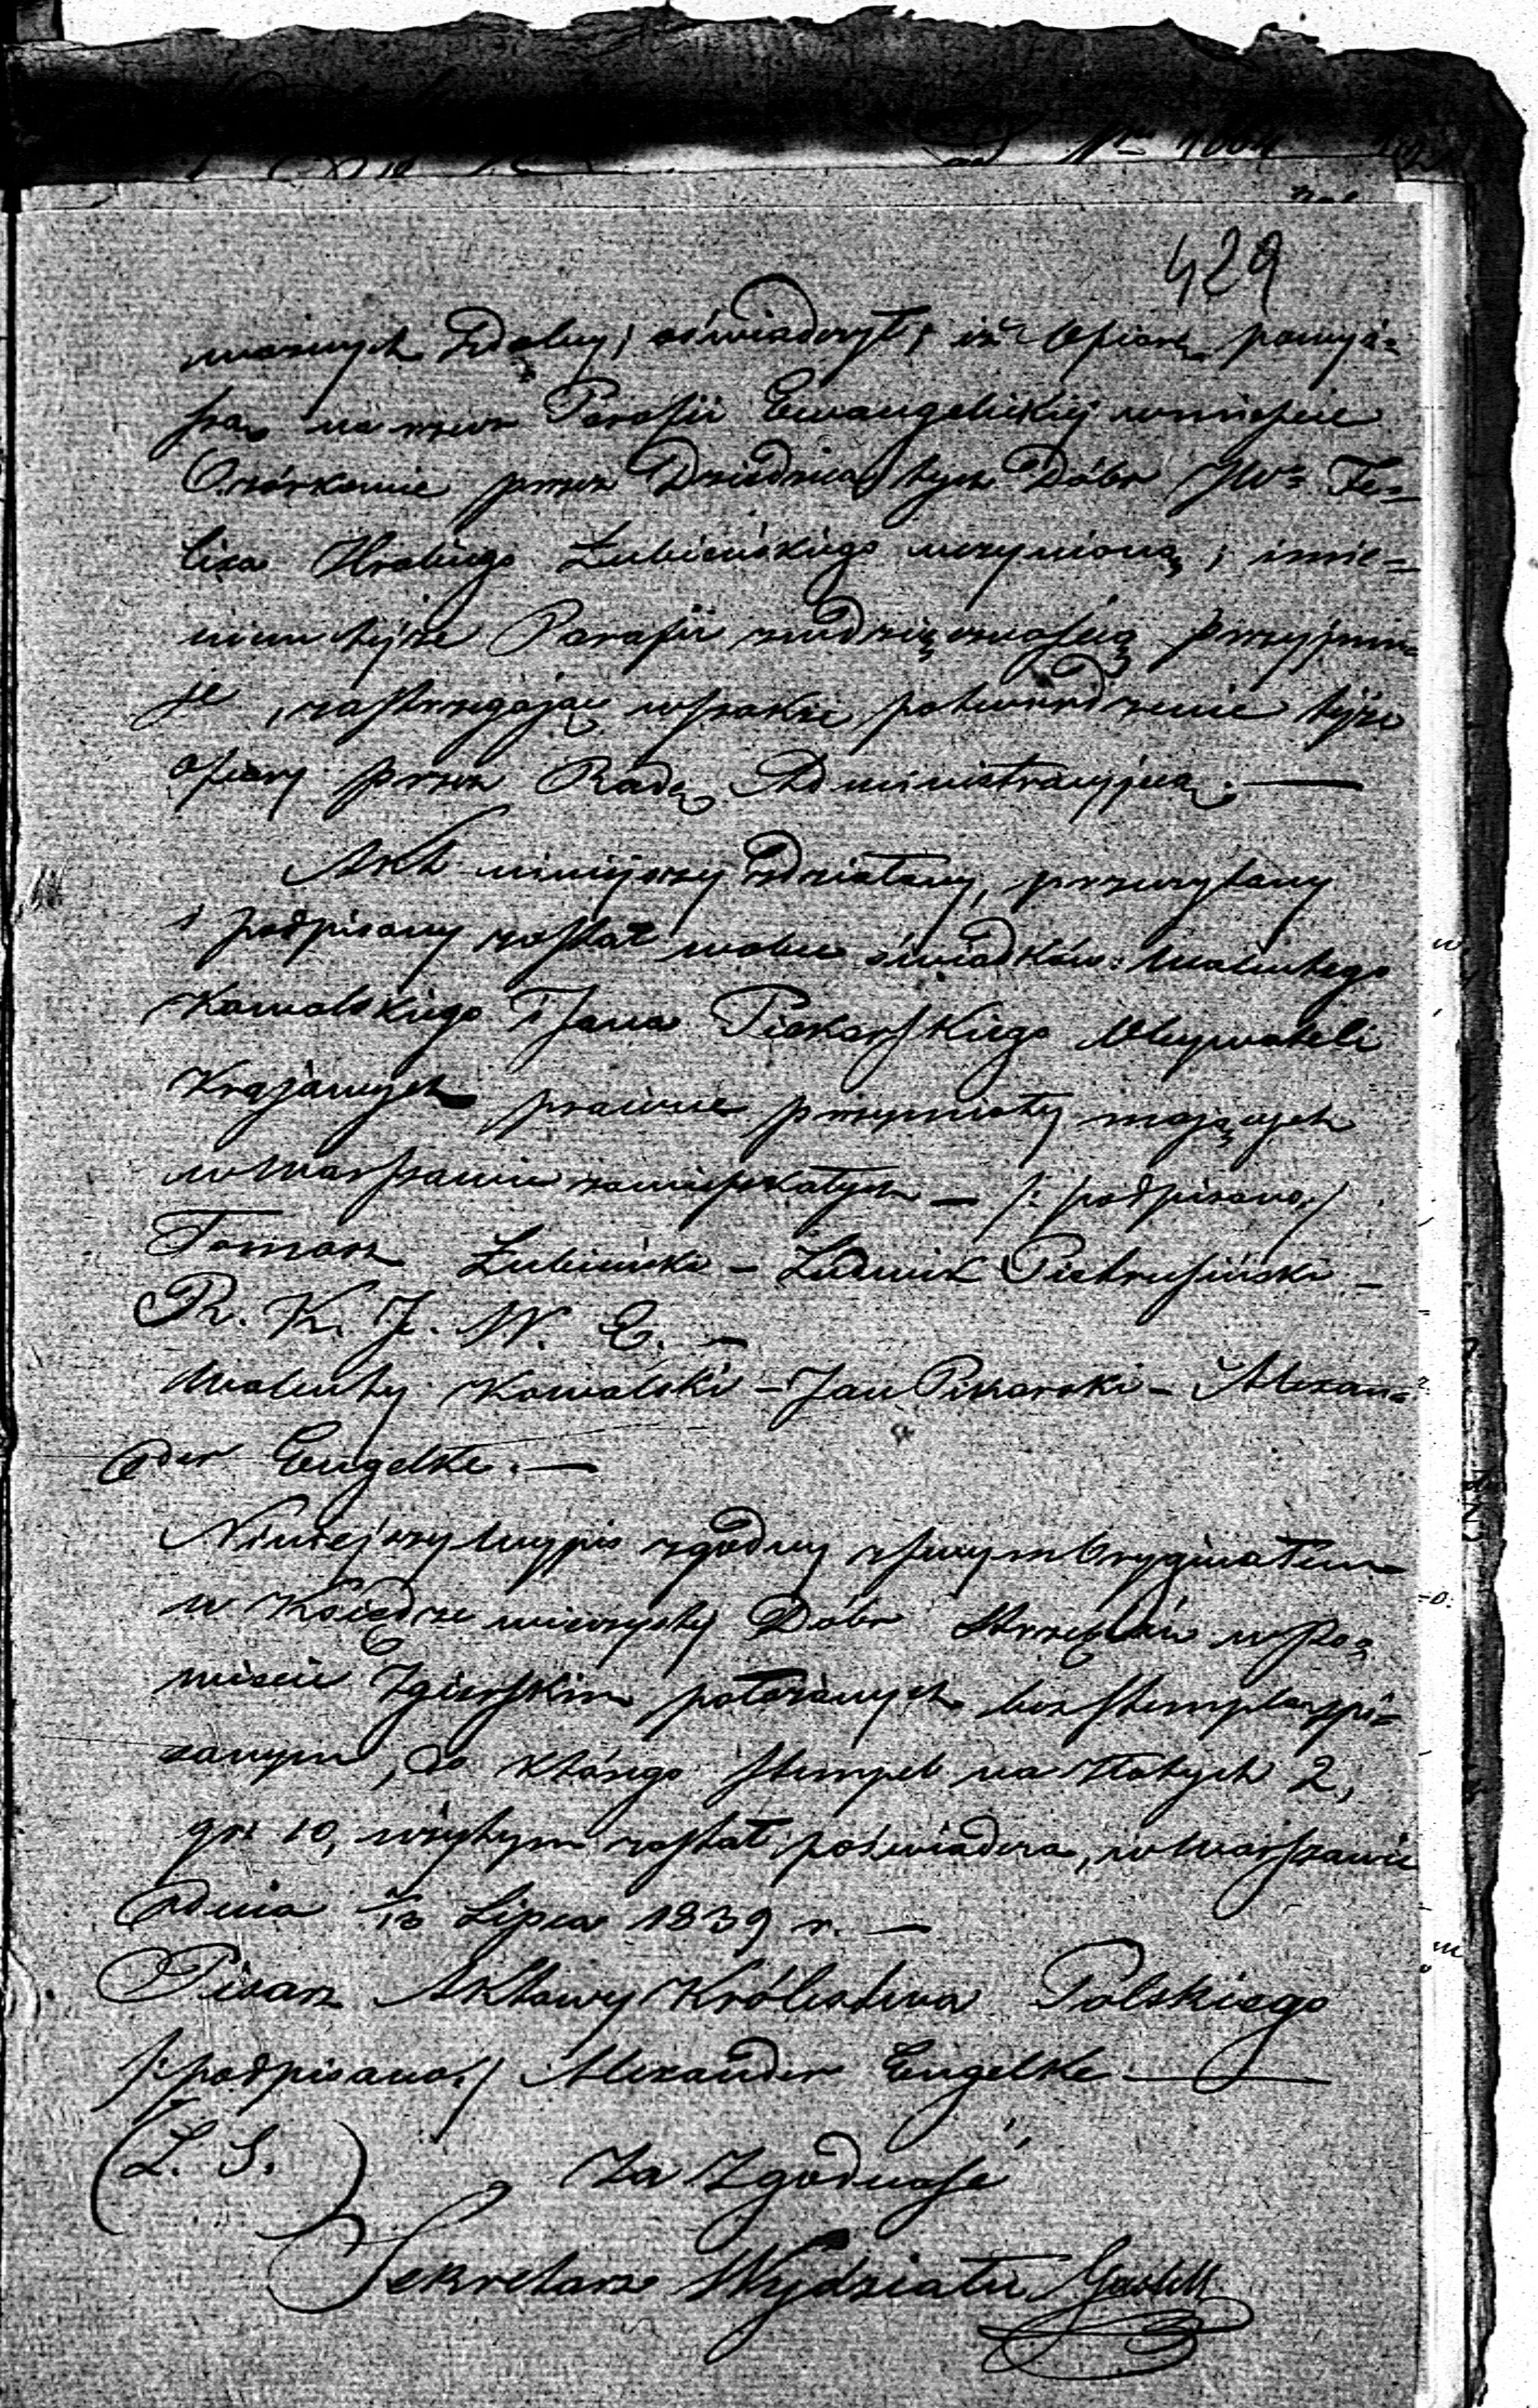 429
zdolny, oświadczył, iż Ofiarę powyż=
szą na rzecz Parafii Ewangelickiej w mieście
Ozórkowie przez Dziedzica tych Dóbr JWo Fe=
lixa Hrabiego Łubieńskiego uczynioną, imie=
niem tejże Parafii z wdzięcznością przyjmu=
je, zastrzegając wszakże potwierdzenie tejże
ofiary przez Radę Administracyjną. —
Akt niniejszy zdziałany, przeczytany
i podpisany został wobec świadków: Walentego
Kowalskiego i Jana Piekarskiego Obywateli
Krajowych prawne przymioty mających
w Warszawie zamieszkałych — /: podpisano :/
Tomasz Łubieński — Ludwik Pietrusiński —
R. K. J. W. E. —
Walenty Kowalski — Jan Piekarski — Alexan=
der Engelke. —
Niniejszy Wypis zgodny z swym Oryginałem
w Księdze wieczystej Dóbr Strzeblów w Po=
wiecie Zgierskim położonych bez stempla spi=
sanym, do którego stempel na złotych 2,
gr. 10, użytym został, poświadcza, w Warszawie
dnia Lipca 1839 r. —
Pisarz Aktowy Królestwa Polskiego
/: podpisano :/ Alexander Engelke —
(L. S.)
Za Zgodność
Sekretarz Wydziału